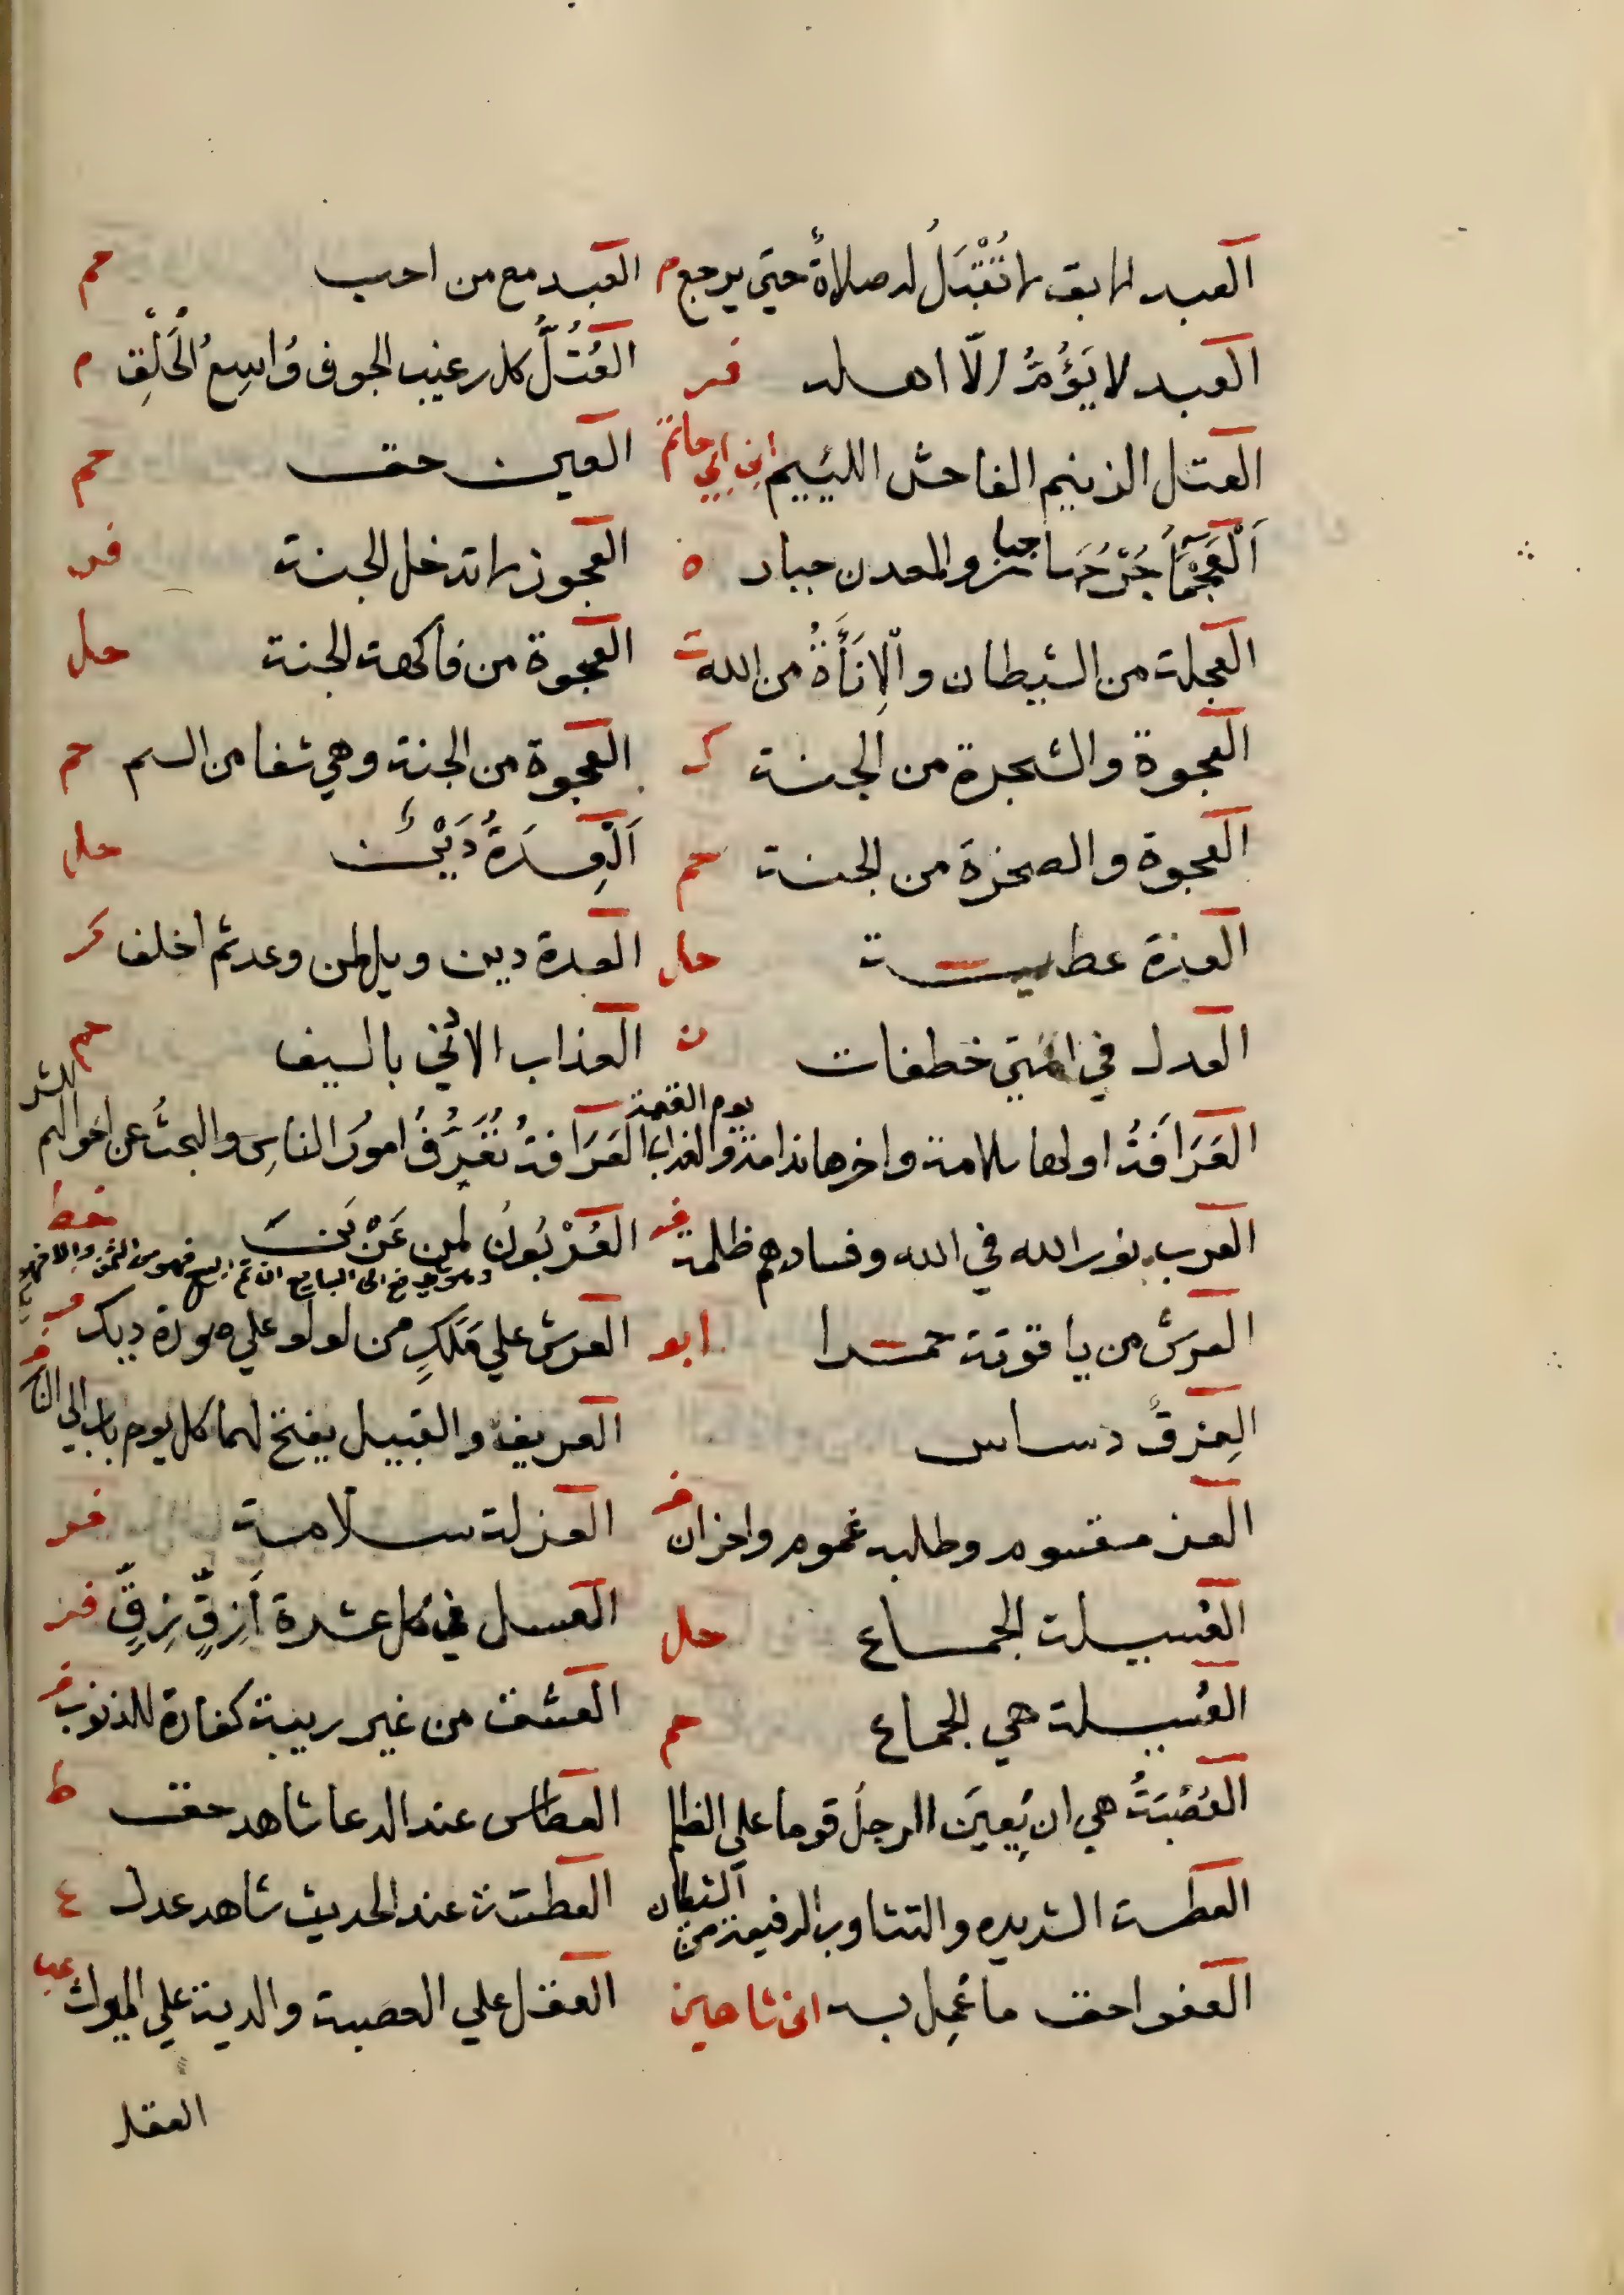 العبد الابق لا تُقْبَلُ له صلاةٌ حتي يرجع م العبد مع من احب حم
العبد لا يَؤُمُّ الّا اهله فر العُتُلُّ كل رغيب الجوف وَاسِعُ الْحَلْقِ م
العتل الزنيم الفاحش اللئيم ابن ابي حاتم العين حق حم
اَلْعَجْمَآءُ جُرْحُهَا جبار والمعدن جبار ه العجوز لا تدخل الجنة فر
العجلة من الشيطان والْانَأَةُ من الله ت العجوة من فاكهة الجنة حل
العجوة والشجرة من الجنة ك العجوة من الجنة وهي شفا من السم حم
العجوة والصخرة من الجنة حم اَلْعِدَةُ دَيْنٌ حل
العدة عطية حل العدة دين ويل لمن وعد ثم اخلف كر
العدل في خطفات ن العذاب الاتي بالسيف حم
العَرَافَةُ اولها ملامة واخرها ندامة والعذاب يوم القيمة العَرَافة تُعَرِّفُ امورَ الناسِ والبحثُ عن احوالهم
العرب نور الله في الله وفسادهم ظلمة فر العُرْبُونُ لمن عَرْبَنَ خط
العرش من ياقوتة حمرا ابو العرش علي مَلَكٍ من لولو علي صورة ديك
العِرقُ دساس العريف والقبيل يفتح لهما كل يوم باب الي النار
العز مقسوم وطلبه غموم واحزان فر العزلة سلامة فر
العُسيلة الجماع حل العسل في كل عشرة أَزِقٍّ زِقٍّ فر
العُسيلة هي الجماع حم العشق من غير ريبة كفارة للذنوب فر
العَصَبَتُ هي ان يُعِينَ الرجلُ قوما علي الظلم العطاس عند الدعا شاهد حق ط
العطسة الشديده والتثاوب الرفيعة من الشيطان العطسة عند الحديث شاهد عدل ع
العفو احق ما عُمِل به ابن شاهين العقل علي العصبة والدية علي الميراث عب
العقل